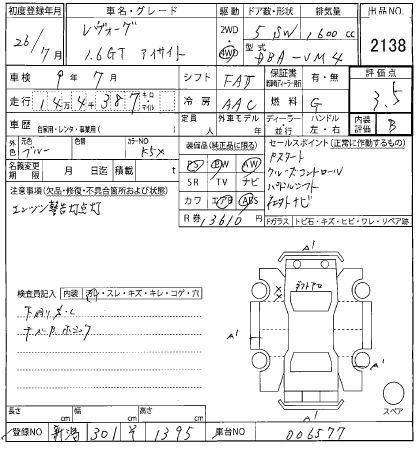 初度登録年月 車名・グレード 駆動 ドア数・形状 排気量 出品NO.
26/7月 レヴォーグ 1.6GT アイサイト 2WD・4WD 5 SW 1,600cc 2138
型式 DBA-VM4
車検 9年7月 シフト FAT 保証書 有・無 評価点 3.5
走行 14万4千387キロ マイル 冷房 AAC 燃料 G
車歴 自家用・レンタ・事業用( ) 定員 人 外車モデル 年 ディーラー・並行 ハンドル 左・右 内装評価 B
外色 元色 色替 カラーNO
ブルー K5X
名義変更期限 月 日迄 積載 t
装備品(純正品に限る) セールスポイント(正常に作動するもの)
PS PW AW
SR TV ナビ
カワ エアB ABS
Pスタート
クルーズコントロール
パドルシフト
注意事項(欠品・修復・不具合箇所および状態)
エンジン警告灯点灯
R券 13610円
Fガラス トビ石・キズ・ヒビ・ワレ・リペア跡
検査員記入 内装 汚れ・スレ・キズ・キレ・コゲ・穴
A1
A1
A1
A1
スペア
長さ cm 幅 cm 高さ cm
登録NO 新潟 301 1395 車台NO 006577